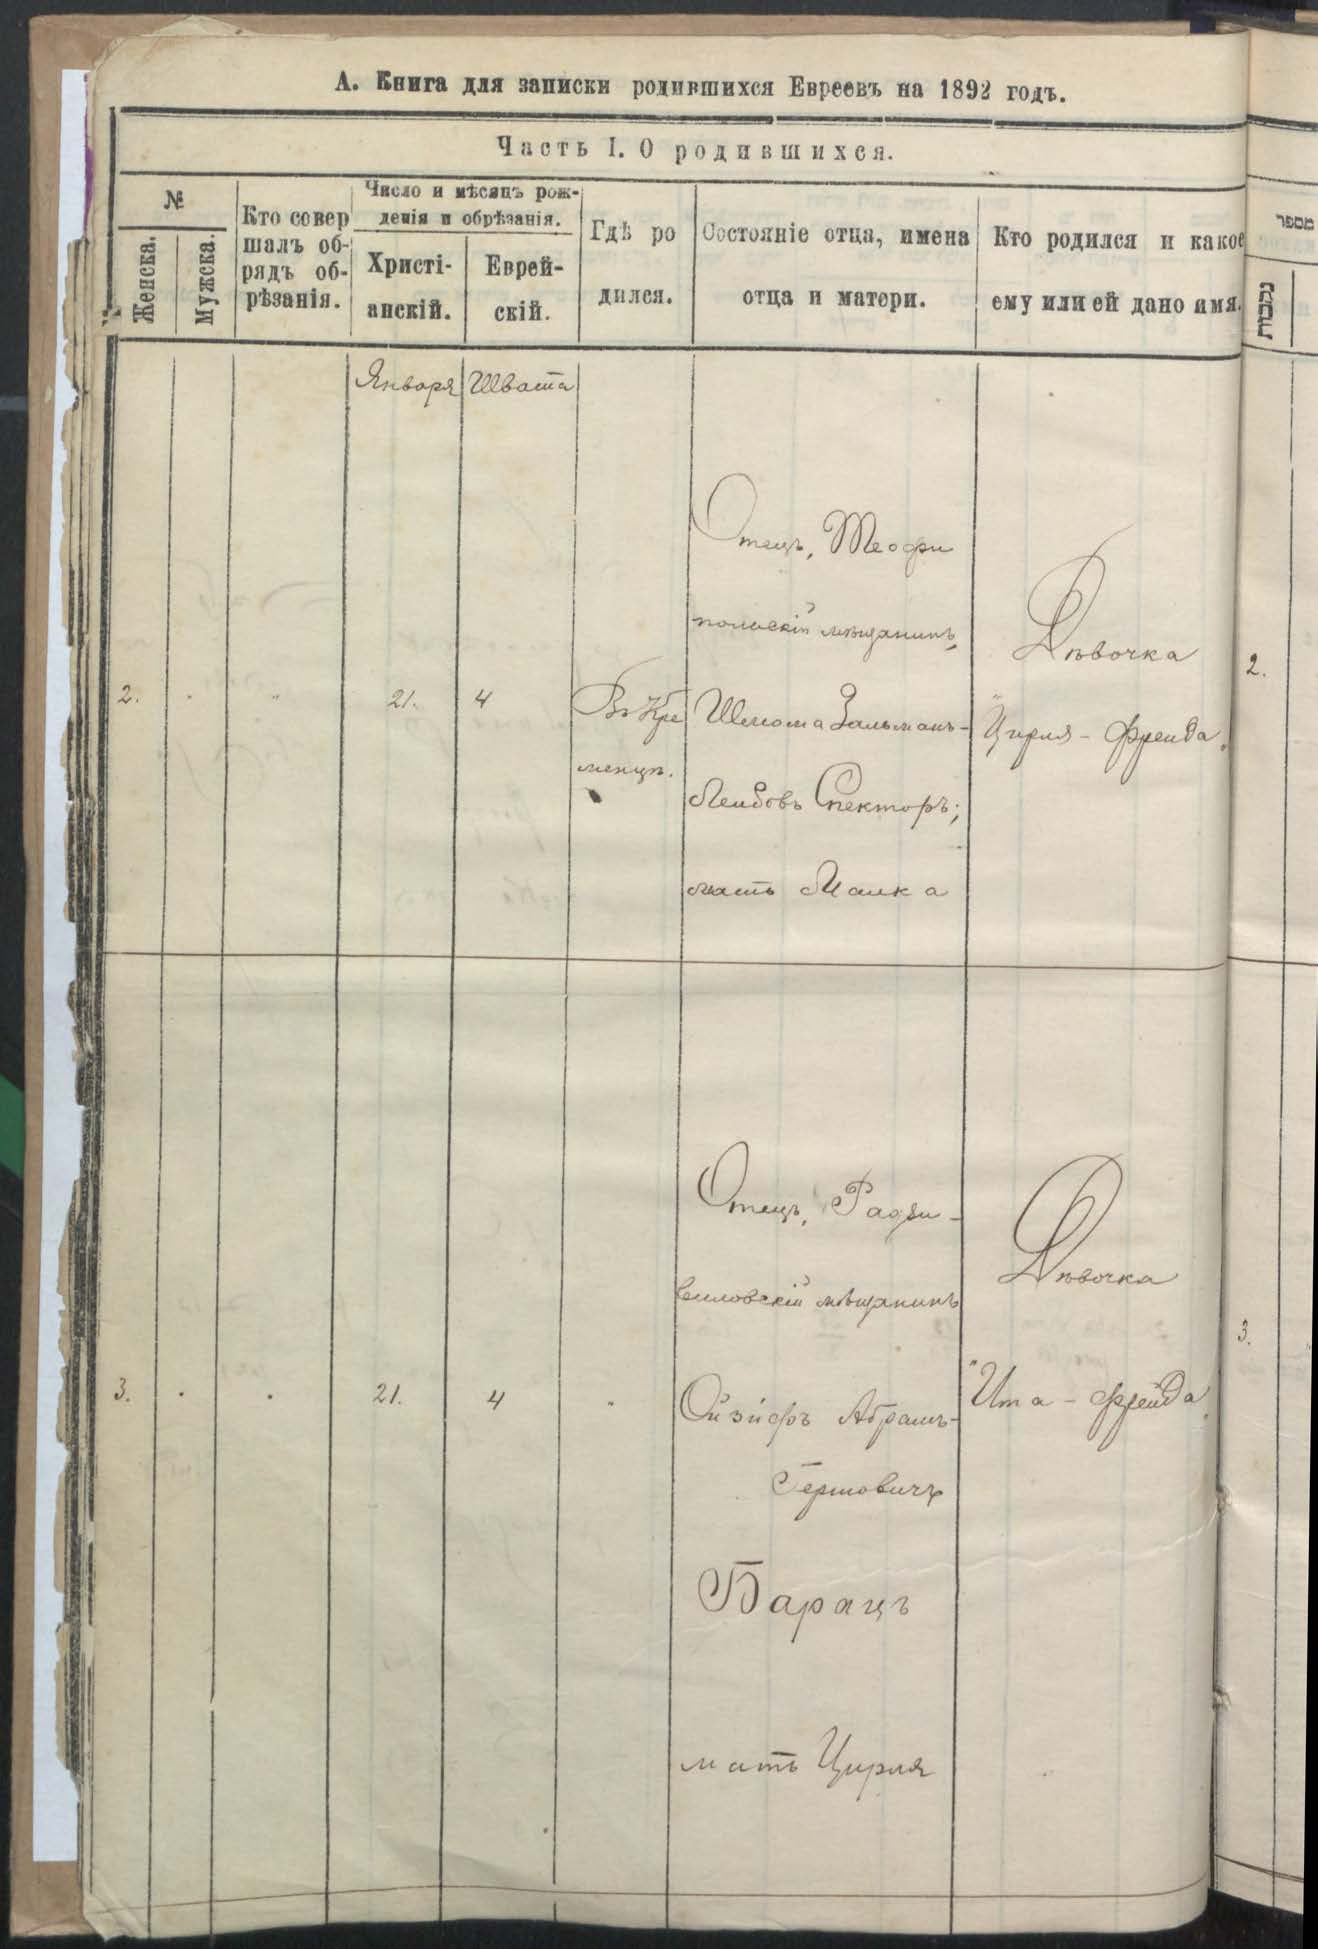 А. Книга для записки родившихся Евреевъ на 1892 годъ.
Часть I. О родившихся.
№
Женска.
Мужска.
Кто совер
шалъ об-
рядъ об-
рѣзанія.
Число и мѣсяцъ рож-
денія и обрѣзанія.
Христі-
анскій.
Еврей-
скій.
Гдѣ ро
дился.
Состояніе отца, имена
отца и матери.
Кто родился и какое
ему или ей дано имя.
מספר
נקבות
Января Швата
2. " " 21. 4
Въ Кре
менцѣ.
Отецъ, Теофи
польскій мѣщанинъ,
Шлиома Зальманъ-
Лейбовъ Спекторъ;
мать Малка
Дѣвочка
"Цирля - Фрейда.
2.
3. " " 21. 4 "
Отецъ, Радзи-
виловскій мѣщанинъ
Ойзифъ Абрамъ-
Гершовичъ
Барацъ
мать Цирля
Дѣвочка
"Ита - Фрейда
3.